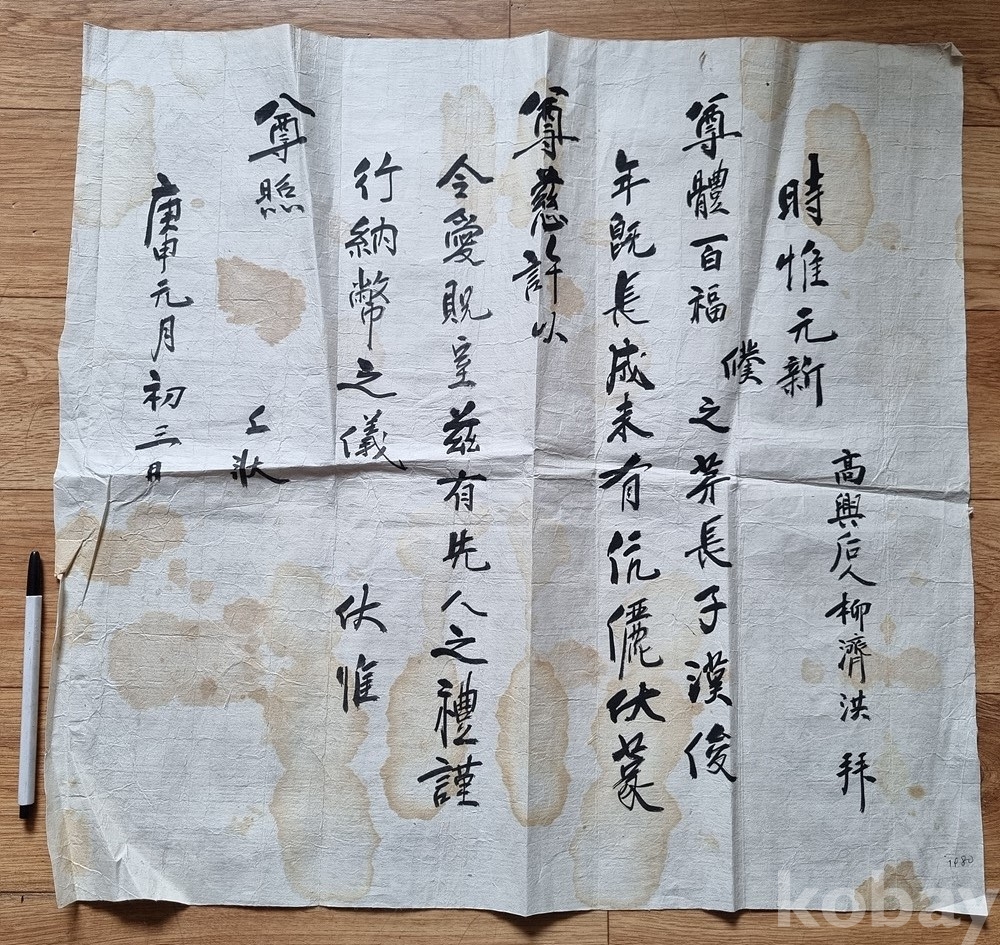 高興后人柳濟洪 拜
時惟元新
尊體百福 僕之第長子漢俊
年旣長成未有伉儷伏蒙
尊慈許以
令愛貺室玆有先人之禮謹
行納幣之儀 伏惟
尊照 上狀
庚申元月初三日
1980
kobay